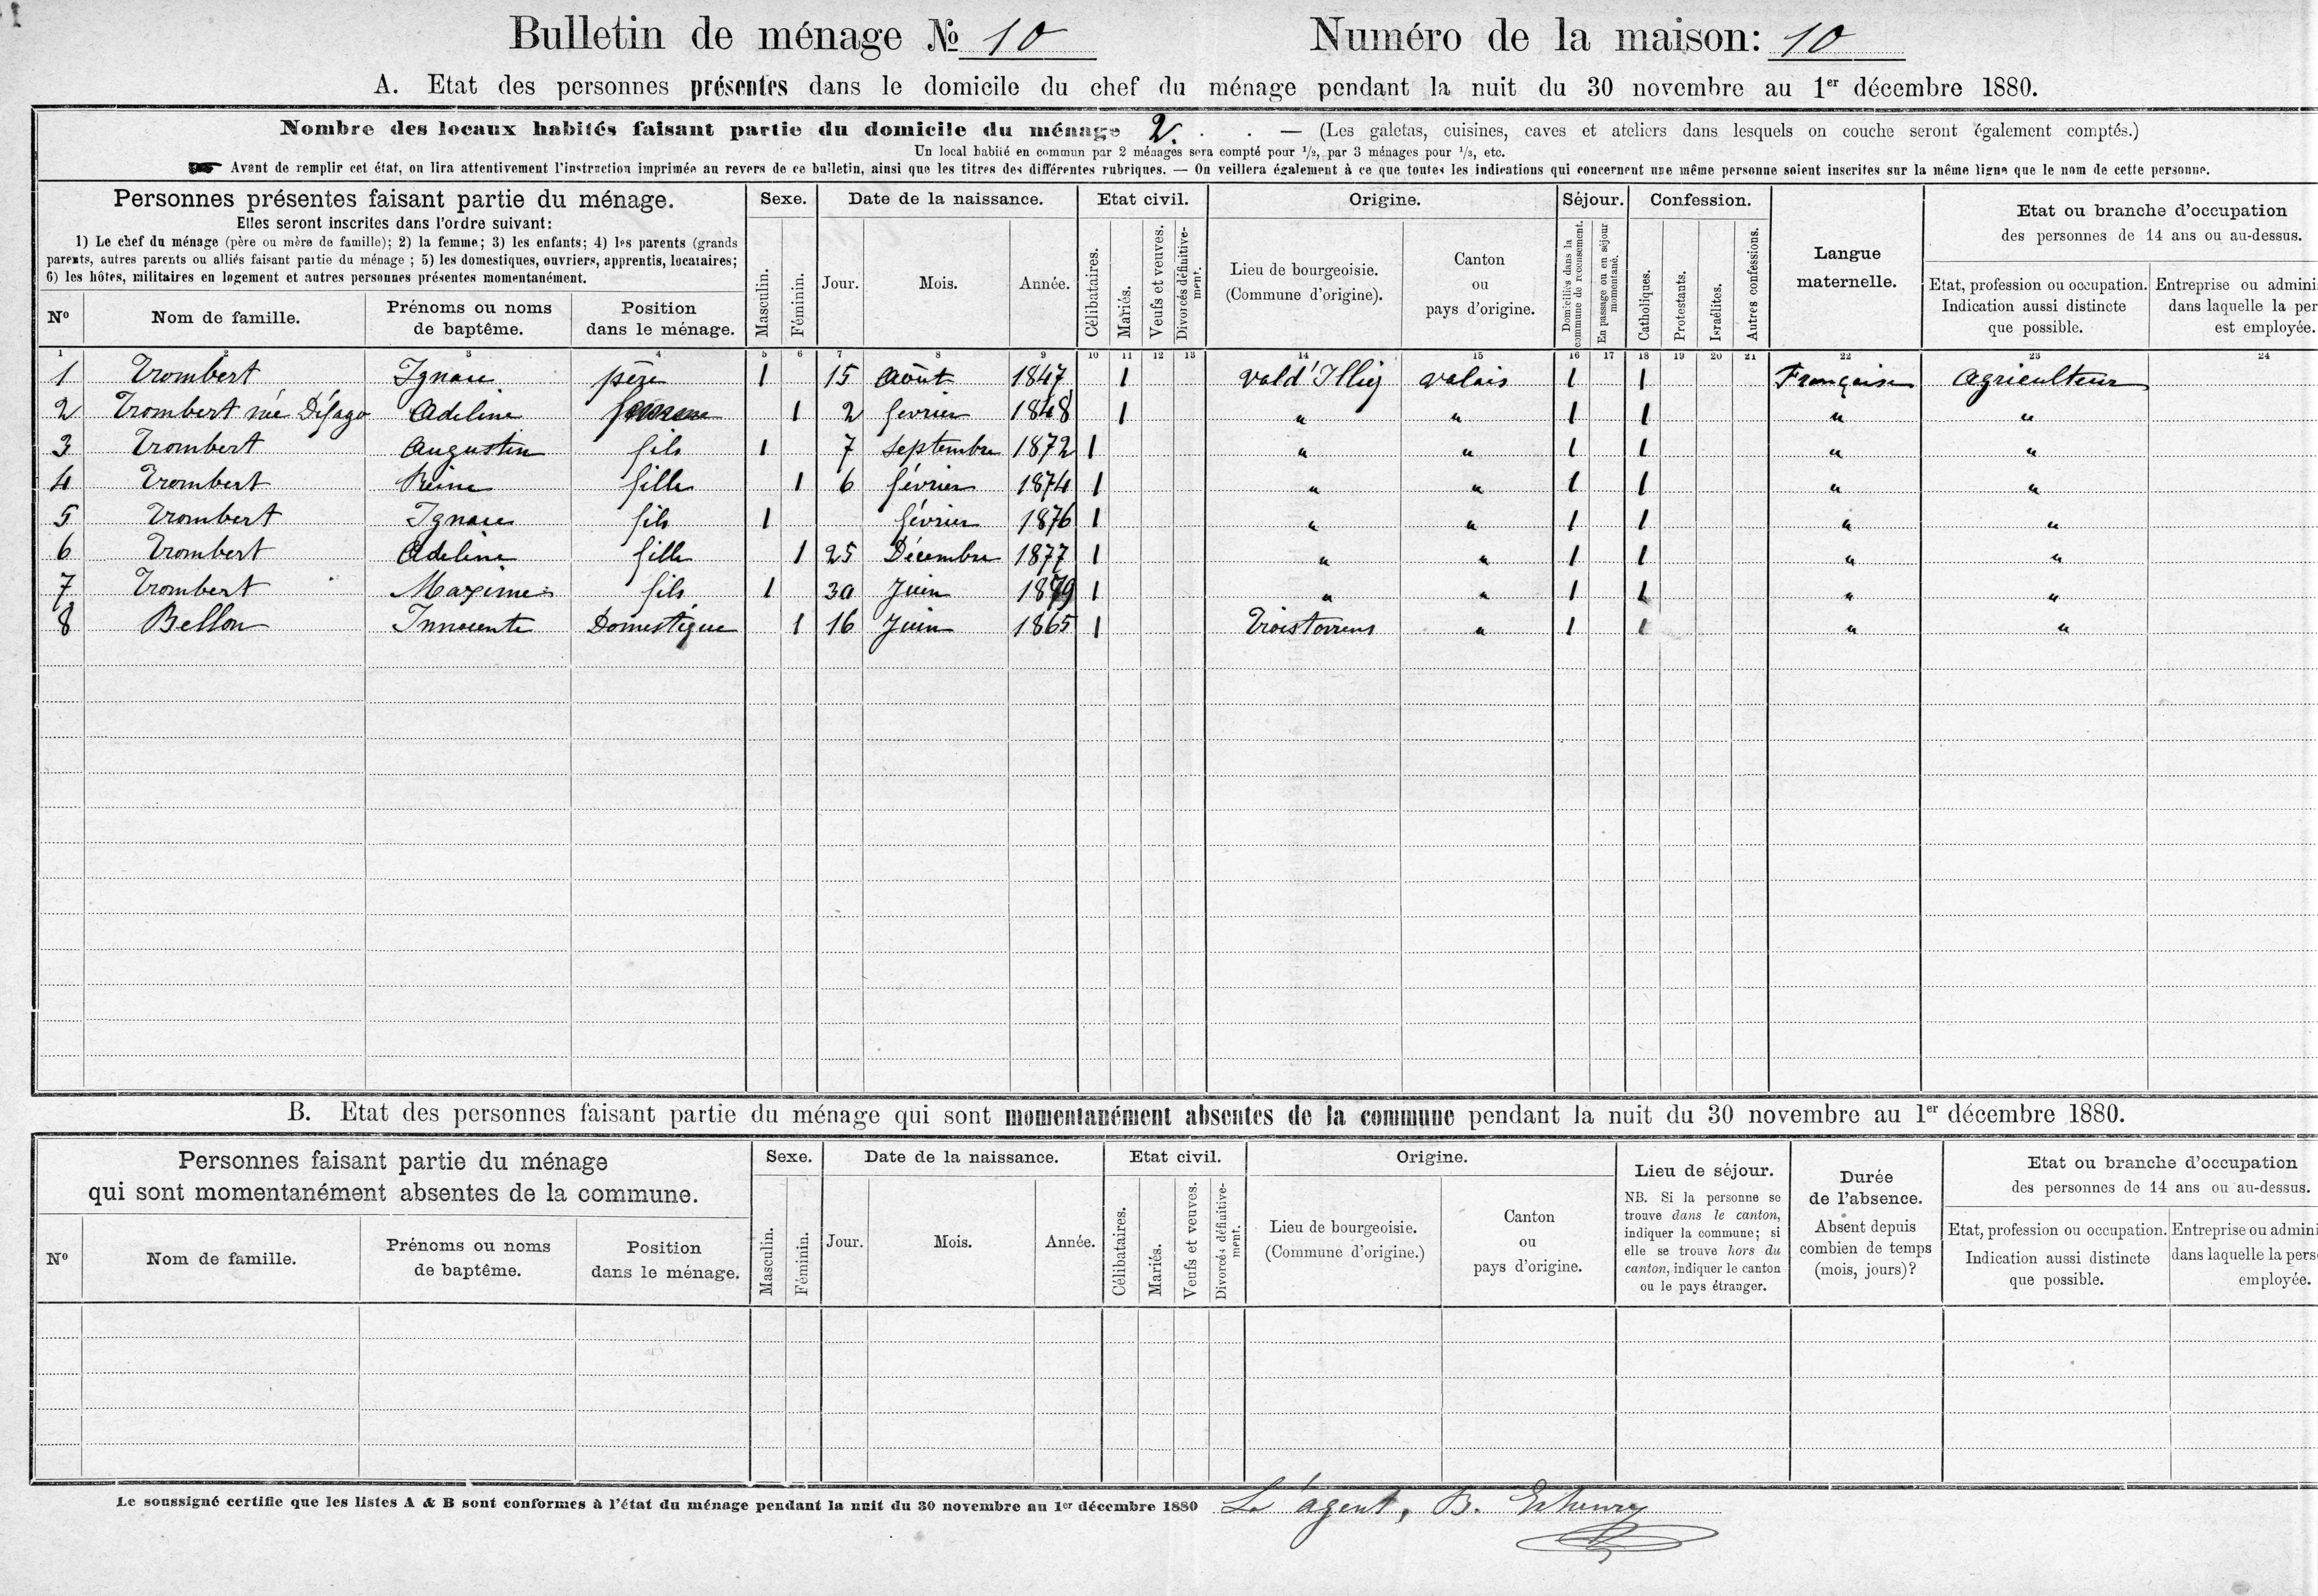 Bulletin de ménage No 10 Numéro de la maison: 10
A. Etat des personnes présentes dans le domicile du chef du ménage pendant la nuit du 30 novembre au 1er décembre 1880.
Nombre des locaux habités faisant partie du domicile du ménage 2. . . — (Les galetas, cuisines, caves et ateliers dans lesquels on couche seront également comptés.)
Un local habité en commun par 2 ménages sera compté pour 1/2, par 3 ménages pour 1/3, etc.
☛ Avant de remplir cet état, on lira attentivement l'instruction imprimée au revers de ce bulletin, ainsi que les titres des différentes rubriques. — On veillera également à ce que toutes les indications qui concernent une même personne soient inscrites sur la même ligne que le nom de cette personne.
Personnes présentes faisant partie du ménage.
Elles seront inscrites dans l'ordre suivant:
1) Le chef du ménage (père ou mère de famille); 2) la femme; 3) les enfants; 4) les parents (grands
parents, autres parents ou alliés faisant partie du ménage; 5) les domestiques, ouvriers, apprentis, locataires;
6) les hôtes, militaires en logement et autres personnes présentes momentanément.
No Nom de famille. Prénoms ou noms de baptême. Position dans le ménage.
Sexe. Masculin. Féminin.
Date de la naissance. Jour. Mois. Année.
Etat civil. Célibataires. Mariés. Veufs et veuves. Divorcés définitive-ment.
Origine. Lieu de bourgeoisie. (Commune d'origine). Canton ou pays d'origine.
Séjour. Domiciliés dans la commune de recensement. En passage ou en séjour momentané.
Confession. Catholiques. Protestants. Israélites. Autres confessions.
Langue maternelle.
Etat ou branche d'occupation
des personnes de 14 ans ou au-dessus.
Etat, profession ou occupation. Indication aussi distincte que possible.
Entreprise ou admini dans laquelle la per est employée.
1 2 3 4 5 6 7 8 9 10 11 12 13 14 15 16 17 18 19 20 21 22 23 24
1 Trombert Ignace père 1 15 Août 1847 1 Val d'Illiez Valais 1 1 Française Agriculteur
2 Trombert née Défago Adeline 1 2 février 1848 1 " " 1 1 " "
3 Trombert Augustin fils 1 7 Septembre 1872 1 " " 1 1 " "
4 Trombert Reine fille 1 6 février 1874 1 " " 1 1 " "
5 Trombert Ignace fils 1 février 1876 1 " " 1 1 " "
6 Trombert Adeline fille 1 25 Décembre 1877 1 " " 1 1 " "
7 Trombert Maxime fils 1 30 Juin 1879 1 " " 1 1 " "
8 Bellon Innocente Domestique 1 16 Juin 1865 1 Troistorrens " 1 1 " "
B. Etat des personnes faisant partie du ménage qui sont momentanément absentes de la commune pendant la nuit du 30 novembre au 1er décembre 1880.
Personnes faisant partie du ménage
qui sont momentanément absentes de la commune.
No Nom de famille. Prénoms ou noms de baptême. Position dans le ménage.
Sexe. Masculin. Féminin.
Date de la naissance. Jour. Mois. Année.
Etat civil. Célibataires. Mariés. Veufs et veuves. Divorcés définitive-ment.
Origine. Lieu de bourgeoisie. (Commune d'origine.) Canton ou pays d'origine.
Lieu de séjour.
NB. Si la personne se
trouve dans le canton,
indiquer la commune; si
elle se trouve hors du
canton, indiquer le canton
ou le pays étranger.
Durée
de l'absence.
Absent depuis
combien de temps
(mois, jours)?
Etat ou branche d'occupation
des personnes de 14 ans ou au-dessus.
Etat, profession ou occupation. Indication aussi distincte que possible.
Entreprise ou admini dans laquelle la pers employée.
Le soussigné certifie que les listes A & B sont conformes à l'état du ménage pendant la nuit du 30 novembre au 1er décembre 1880 L'agent, B. Eshenry